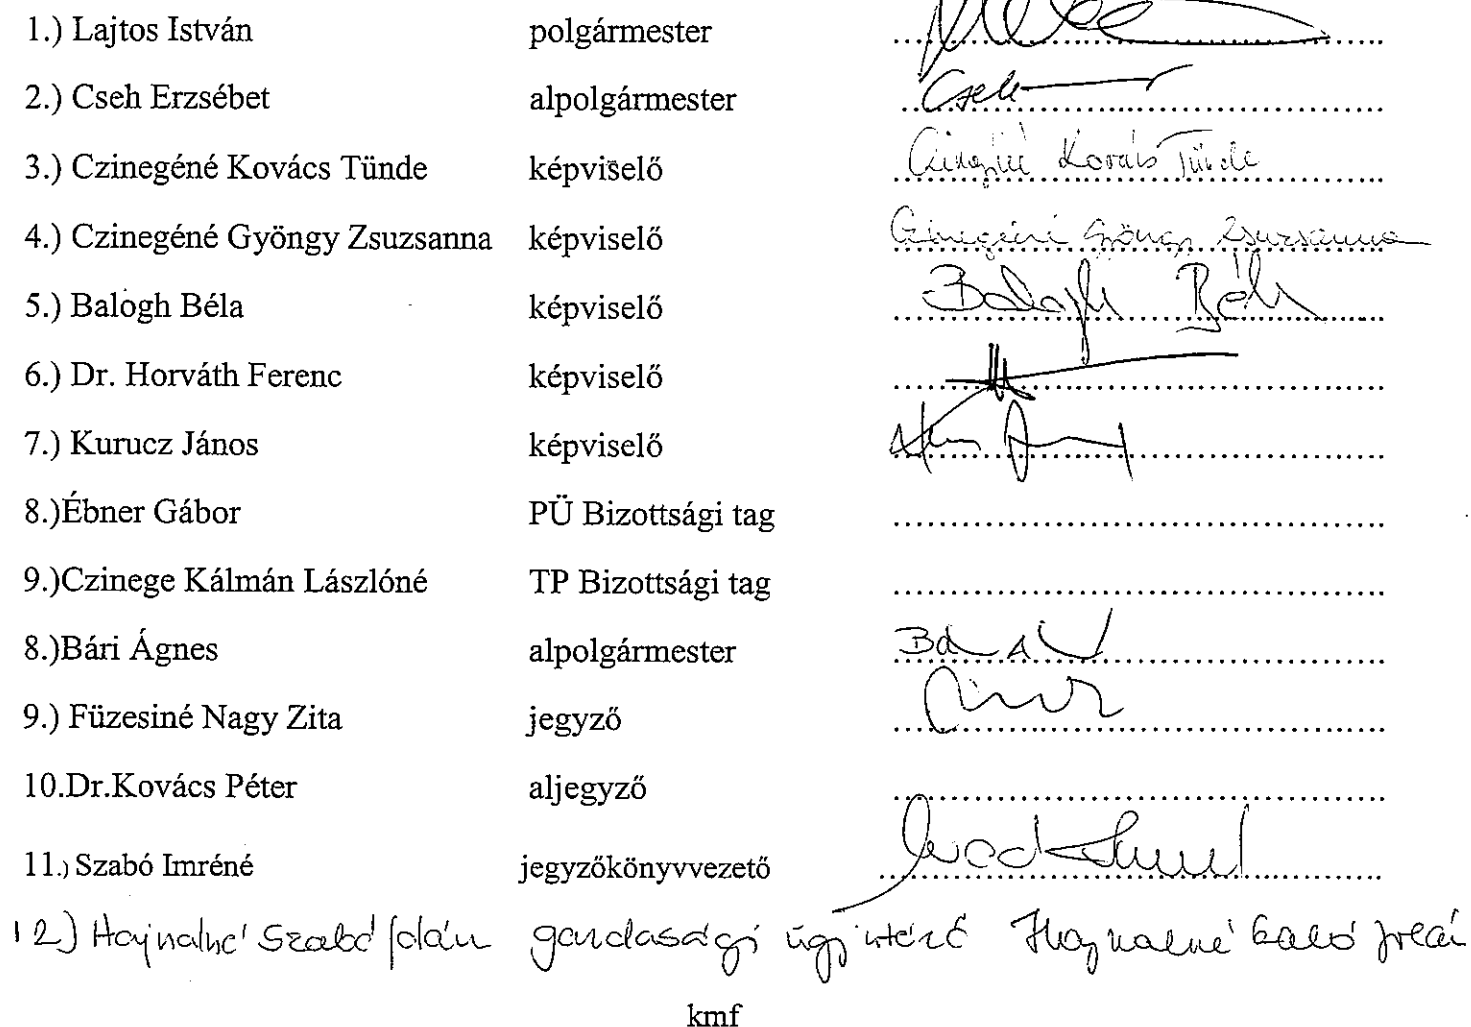 1.) Lajtos István polgármester
2.) Cseh Erzsébet alpolgármester Cseh
3.) Czinegéné Kovács Tünde képviselő Czinegéné Kovács Tünde
4.) Czinegéné Gyöngy Zsuzsanna képviselő Czinegéné Gyöngy Zsuzsanna
5.) Balogh Béla képviselő Balogh Béla
6.) Dr. Horváth Ferenc képviselő
7.) Kurucz János képviselő
8.)Ébner Gábor PÜ Bizottsági tag
9.)Czinege Kálmán Lászlóné TP Bizottsági tag
8.)Bári Ágnes alpolgármester
9.) Füzesiné Nagy Zita jegyző
10.Dr.Kovács Péter aljegyző
11.) Szabó Imréné jegyzőkönyvvezető
12.) Hajnalné Szabó gazdasági ügyintéző Hajnalné Szabó
kmf